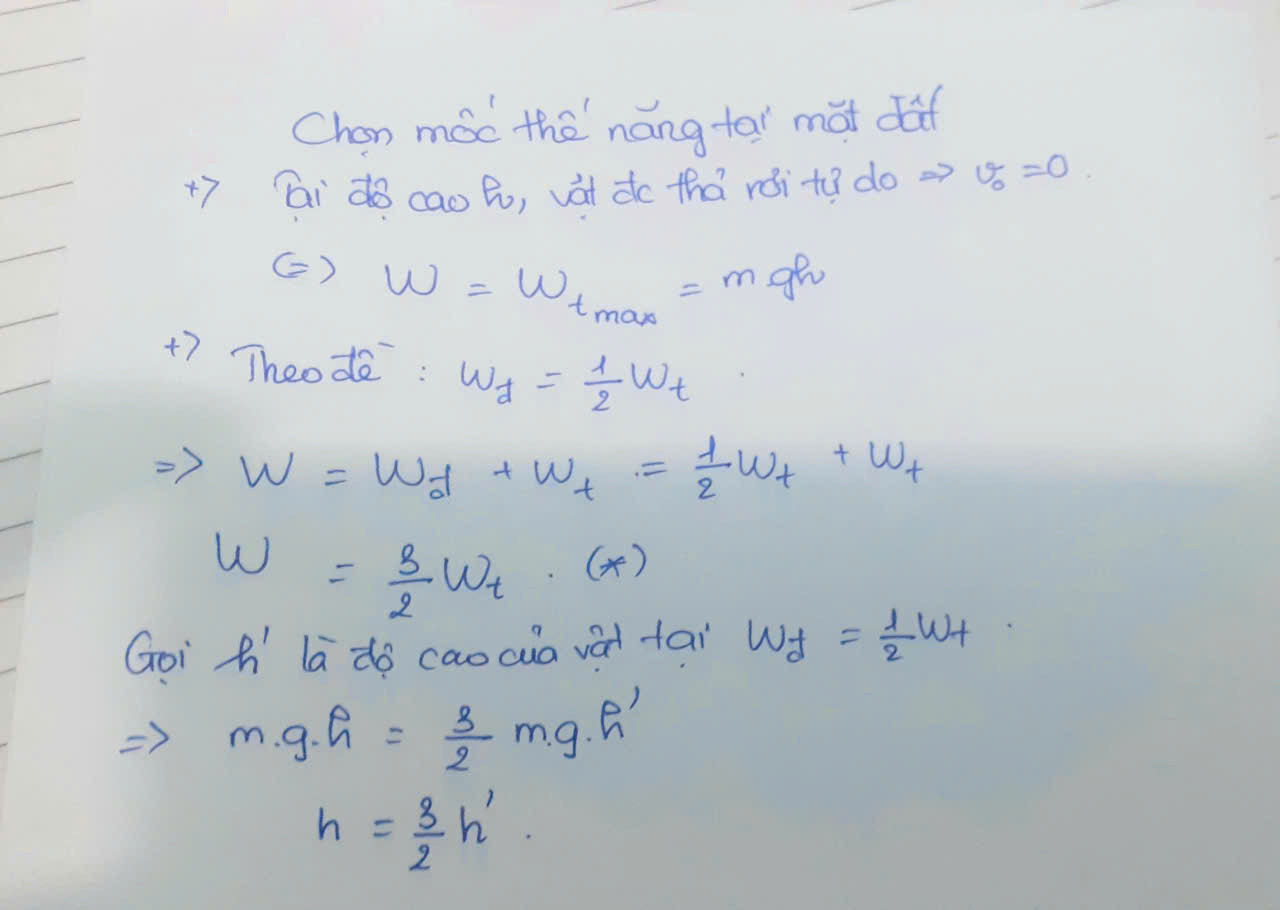 Chọn mốc thế năng tại mặt đất
+> Tại độ cao h, vật đc thả rơi tự do => v₀ = 0.
<=> W = Wₜ max = mgh
+> Theo đề : Wđ = 1/2 Wt .
=> W = Wđ + Wt = 1/2 Wt + Wt
W = 3/2 Wt . (*)
Gọi h' là độ cao của vật tại Wđ = 1/2 Wt .
=> m.g.h = 3/2 m.g.h'
h = 3/2 h' .